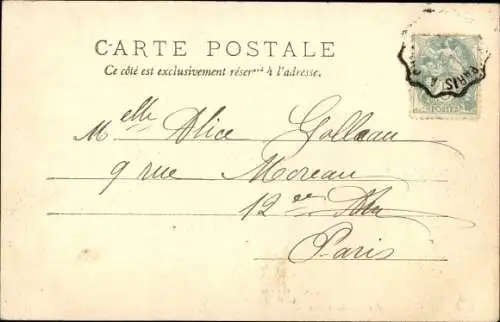 CARTE POSTALE
Ce côté est exclusivement réservé à l'adresse.
PARIS À
POSTES
Melle Alice Golleau
9 rue Moreau
12ee
Paris